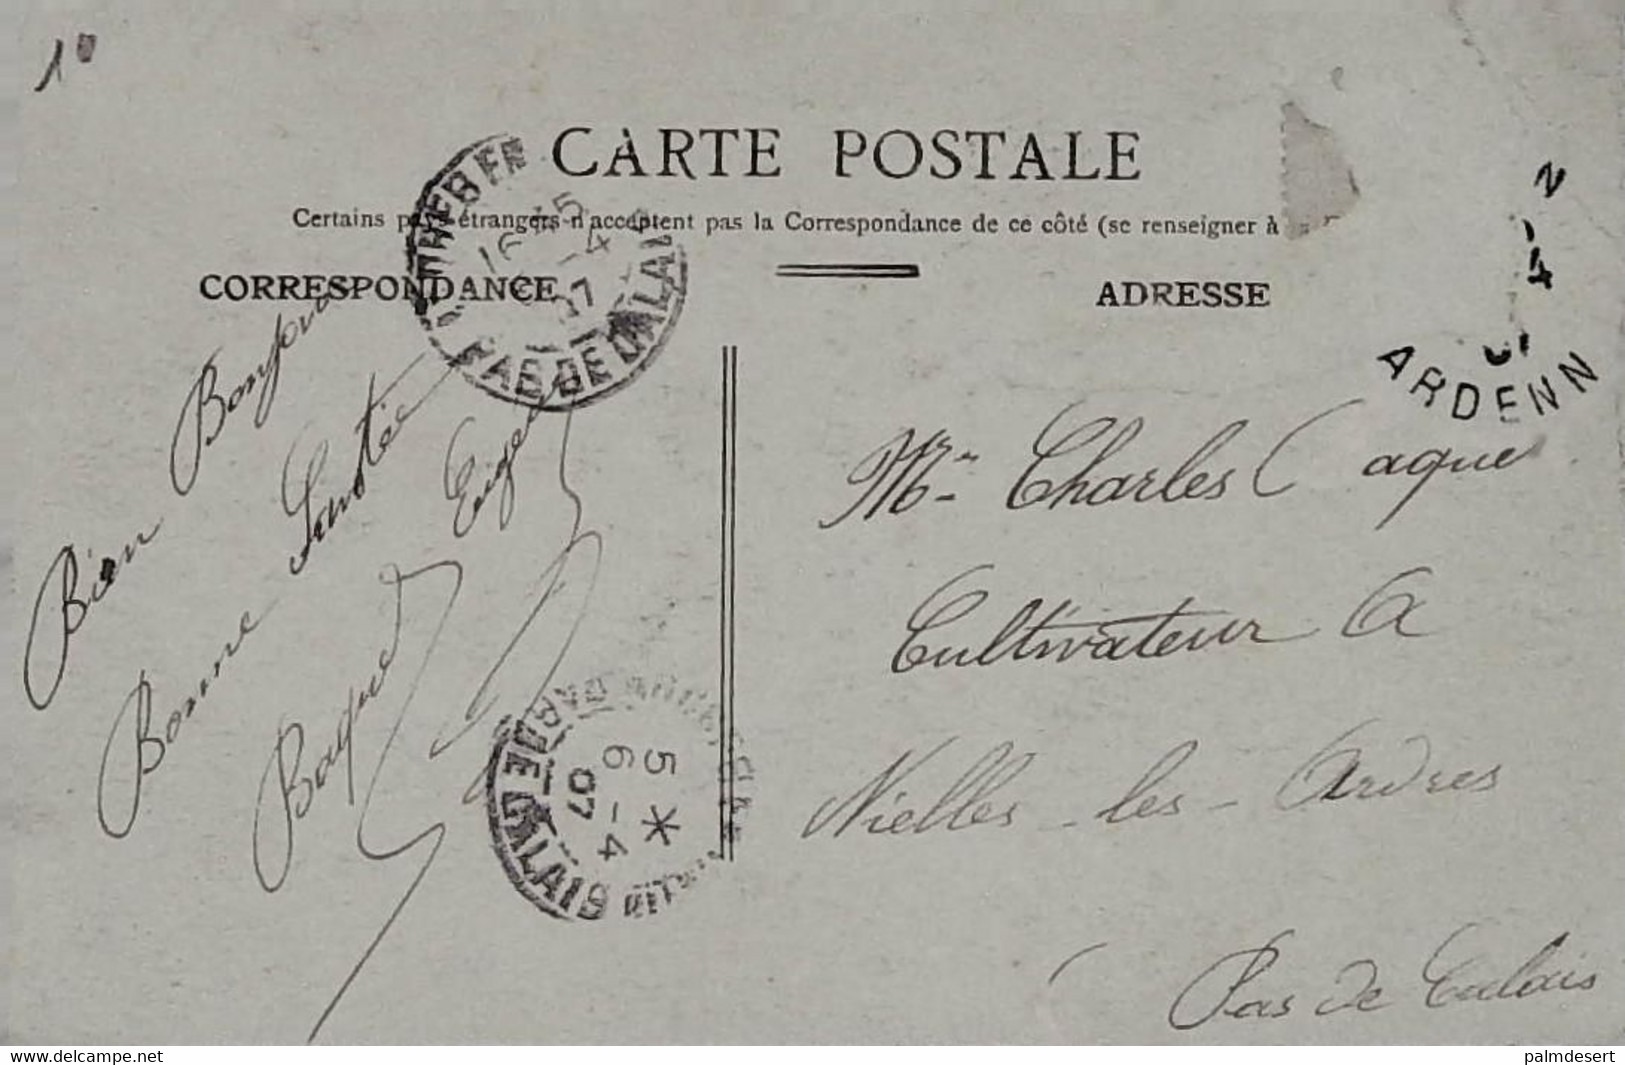 10
CARTE POSTALE
Certains pays étrangers n'acceptent pas la Correspondance de ce côté (se renseigner à
CORRESPONDANCE
ADRESSE
16 45
-4
07
PAS DE CALAIS
N
-4
ARDENN
Bien Bonjour
Bonne Santée
Eugen
Baquet
Mr Charles Caque
Cultivateur A
Nielles-les-Ardres
Pas de Calais
5 *
6 - 4
07
PAS DE CALAIS
www.delcampe.net
palmdesert